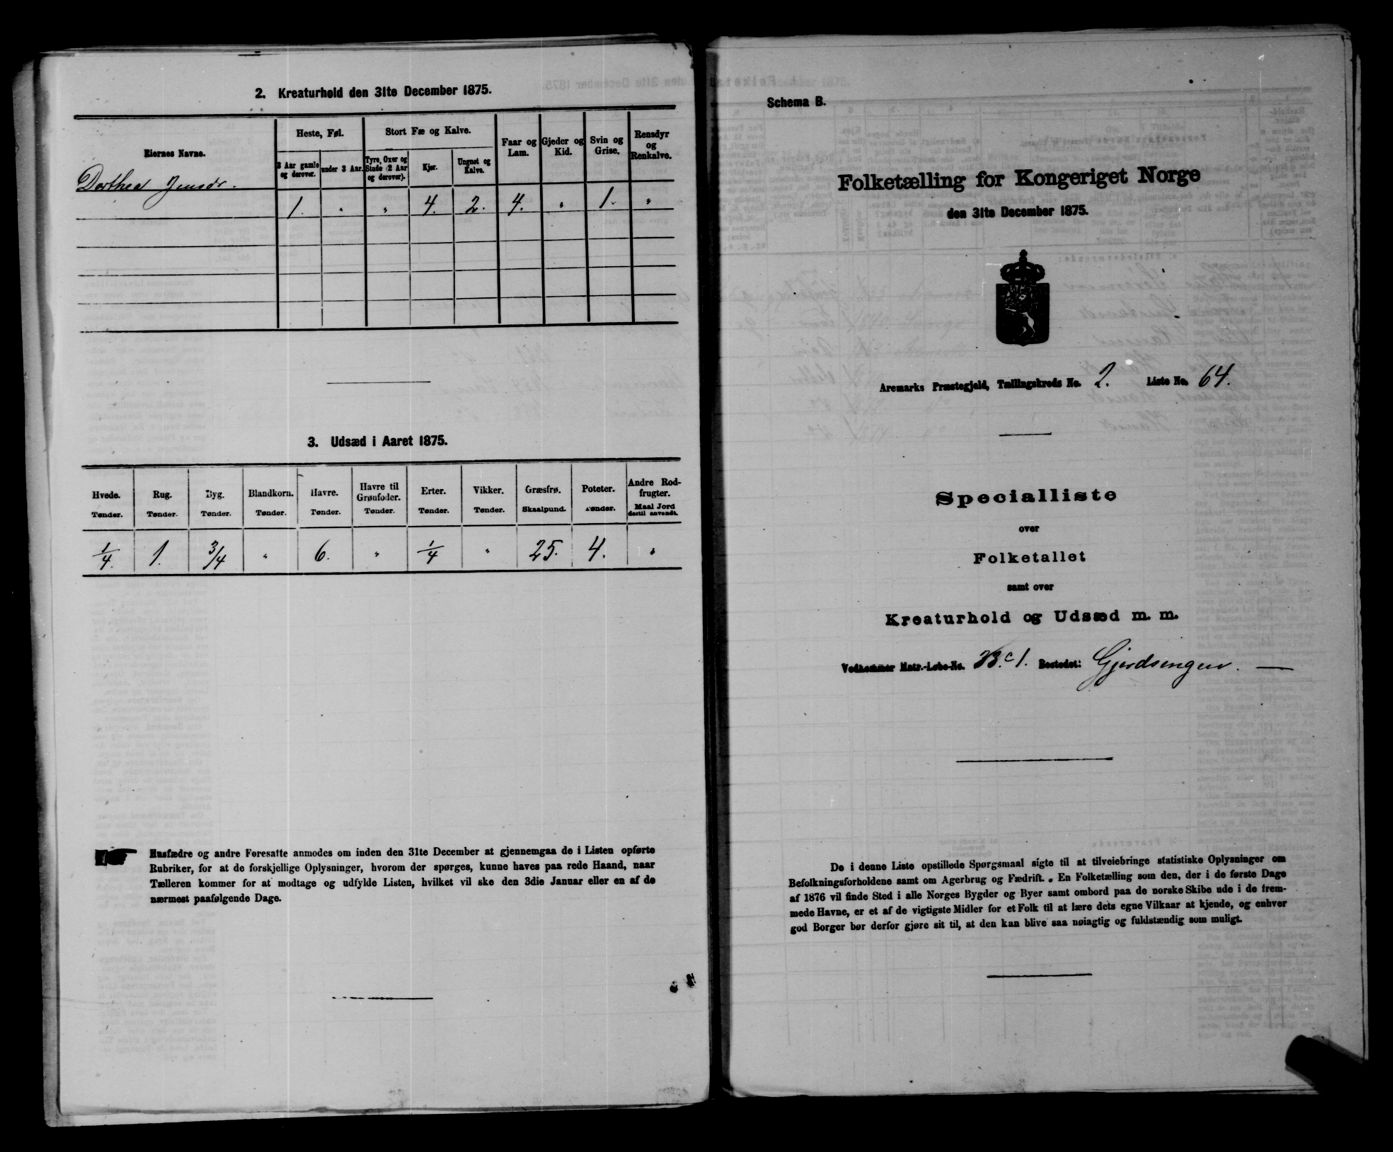 2. Kreaturhold den 31te December 1875.
Eiernes Navne.
Heste, Føl.
Stort Fæ og Kalve.
Faar og Lam.
Gjeder og Kid.
Svin og Grise.
Rensdyr og Renkalve.
3 Aar gamle og derover.
under 3 Aar.
Tyre, Oxer og Stude (2 Aar og derover).
Kjør.
Ungnøt og Kalve.
Dorthea Jensdr.
1. " " 4. 2. 4. " 1. "
3. Udsæd i Aaret 1875.
Hvede. Rug. Byg. Blandkorn. Havre. Havre til Grønfoder. Erter. Vikker. Græsfrø. Poteter. Andre Rodfrugter.
Tønder. Tønder. Tønder. Tønder. Tønder. Tønder. Tønder. Tønder. Skaalpund. Tønder. Maal Jord dertil anvendt.
1/4. 1. 3/4 " 6. " 1/4 " 25. 4. "
Husfædre og andre Foresatte anmodes om inden den 31te December at gjennemgaa de i Listen opførte
Rubriker, for at de forskjellige Oplysninger, hvorom der spørges, kunne haves paa rede Haand, naar
Tælleren kommer for at modtage og udfylde Listen, hvilket vil ske den 3die Januar eller en af de
nærmest paafølgende Dage.
Schema B.
Folketælling for Kongeriget Norge
den 31te December 1875.
Aremarks Præstegjeld, Tællingskreds No. 2. Liste No. 64.
Specialliste
over
Folketallet
samt over
Kreaturhold og Udsæd m. m.
Vedkommer Matr.-Løbe-No. 23.c1. Bostedet: Gjerdsengen.
De i denne Liste opstillede Spørgsmaal sigte til at tilveiebringe statistiske Oplysninger om
Befolkningsforholdene samt om Agerbrug og Fædrift. En Folketælling som den, der i de første Dage
af 1876 vil finde Sted i alle Norges Bygder og Byer samt ombord paa de norske Skibe ude i de frem-
mede Havne, er et af de vigtigste Midler for et Folk til at lære dets egne Vilkaar at kjende, og enhver
god Borger bør derfor gjøre sit til, at den kan blive saa nøiagtig og fuldstændig som muligt.